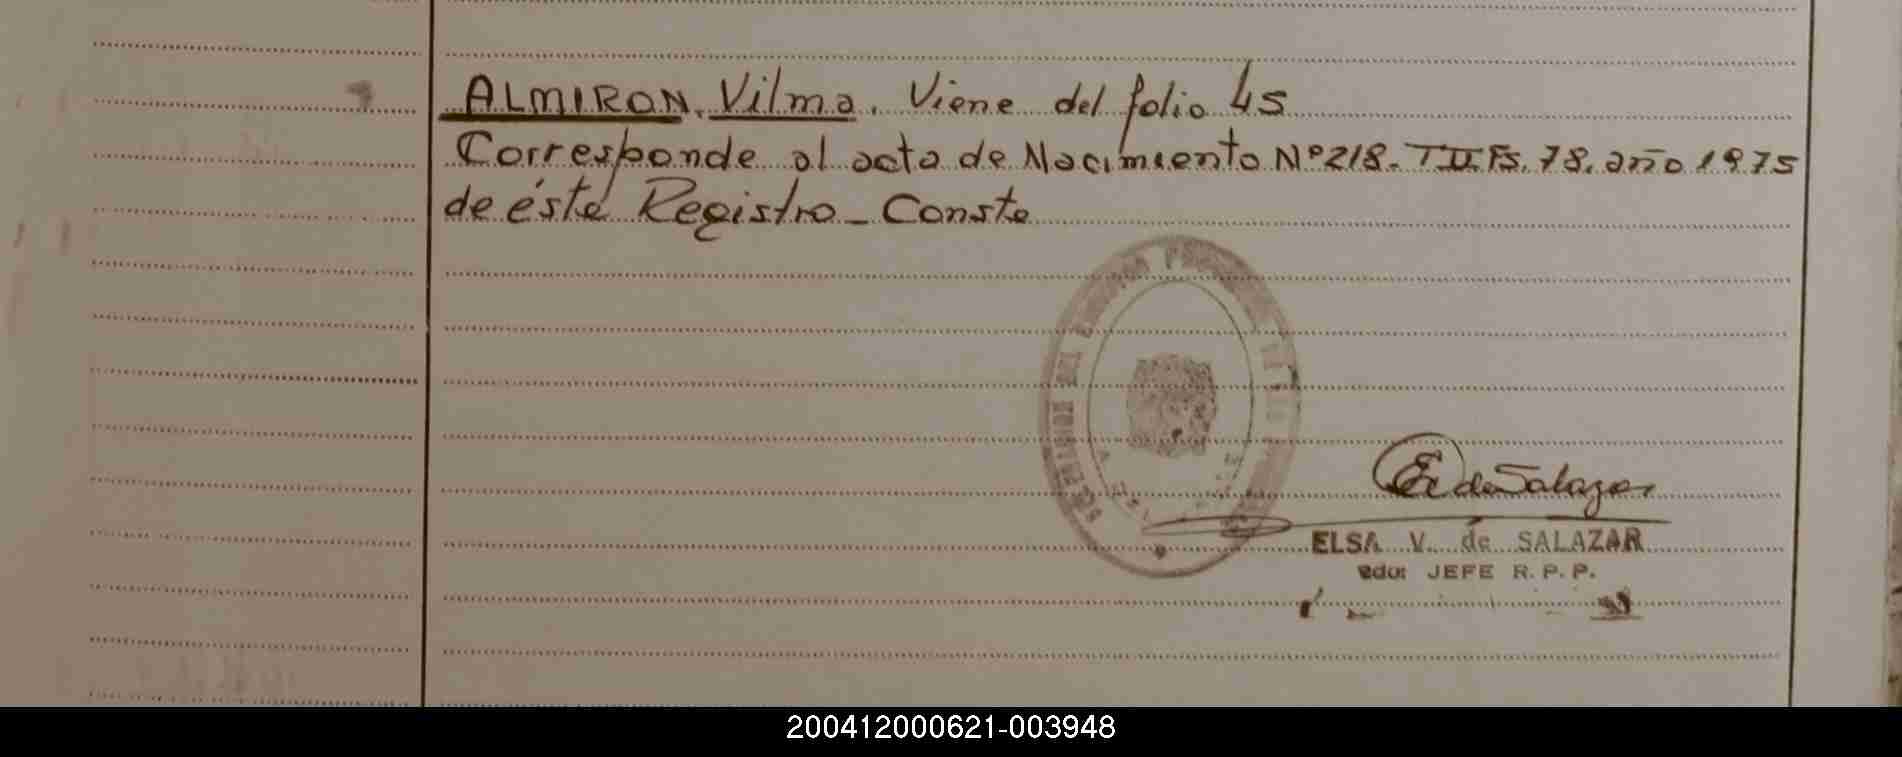 ALMIRON, Vilma. Viene del folio 45
Corresponde al acta de Nacimiento Nº 218- T II. Fs. 78. año 1975
de ésté Registro_ Conste
E V de Salazar
ELSA V. de SALAZAR
JEFE R. P. P.
200412000621-003948